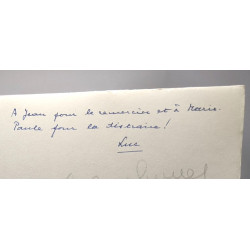 A Jean pour le remercier et à Marie.
Paule pour la distraire !
Luc